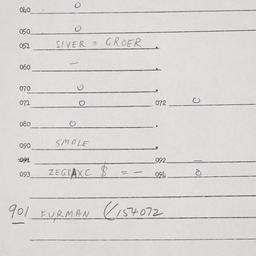 040 0
050 0
051 SIVER = GROER
060 —
070 0
071 0 072 0
080 0
090 SMOLE
091 092 —
093 ZEGRAXC $ = — 094 8
901 FURMAN (/154072